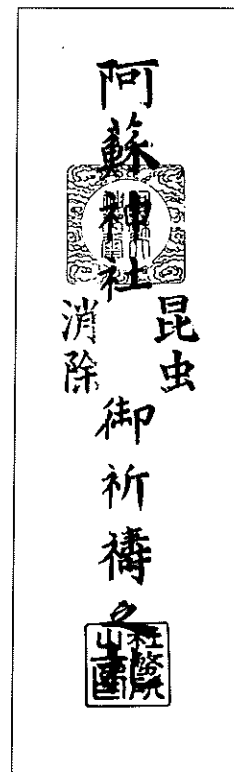 阿蘇神社
昆虫
消除
御祈禱之